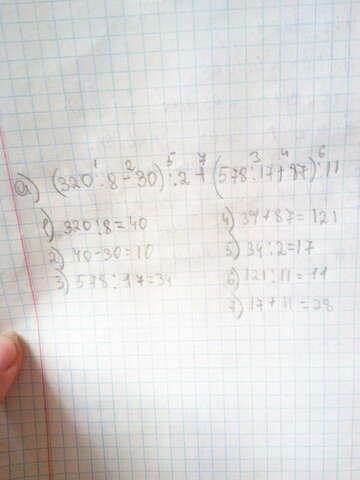 а) (320 : 8 - 30) : 2 + (578 : 17 + 87) : 11
1) 320 : 8 = 40
2) 40 - 30 = 10
3) 578 : 17 = 34
4) 34 + 87 = 121
5) 34 : 2 = 17
6) 121 : 11 = 11
7) 17 + 11 = 28